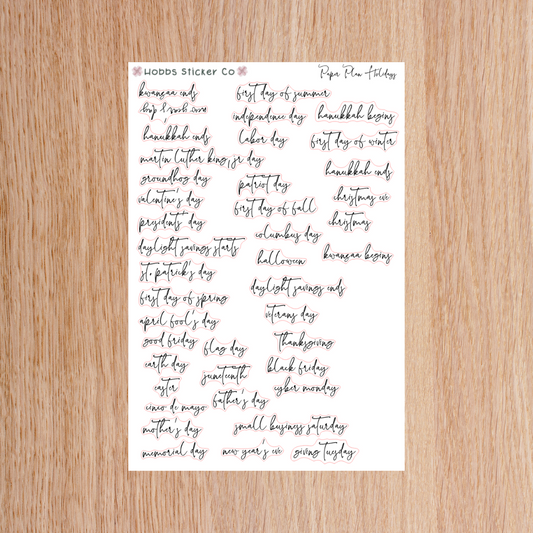 Hobbs Sticker Co
Paper Plan Holidays
kwanzaa ends
new year's day
hanukkah ends
martin luther king, jr day
groundhog day
valentine's day
presidents' day
daylight savings starts
st. patrick's day
first day of spring
april fool's day
good friday
earth day
easter
cinco de mayo
mother's day
memorial day
flag day
juneteenth
father's day
first day of summer
independence day
labor day
patriot day
first day of fall
columbus day
halloween
daylight savings ends
veterans day
thanksgiving
black friday
cyber monday
small business saturday
new year's eve
giving tuesday
hanukkah begins
first day of winter
hanukkah ends
christmas eve
christmas
kwanzaa begins